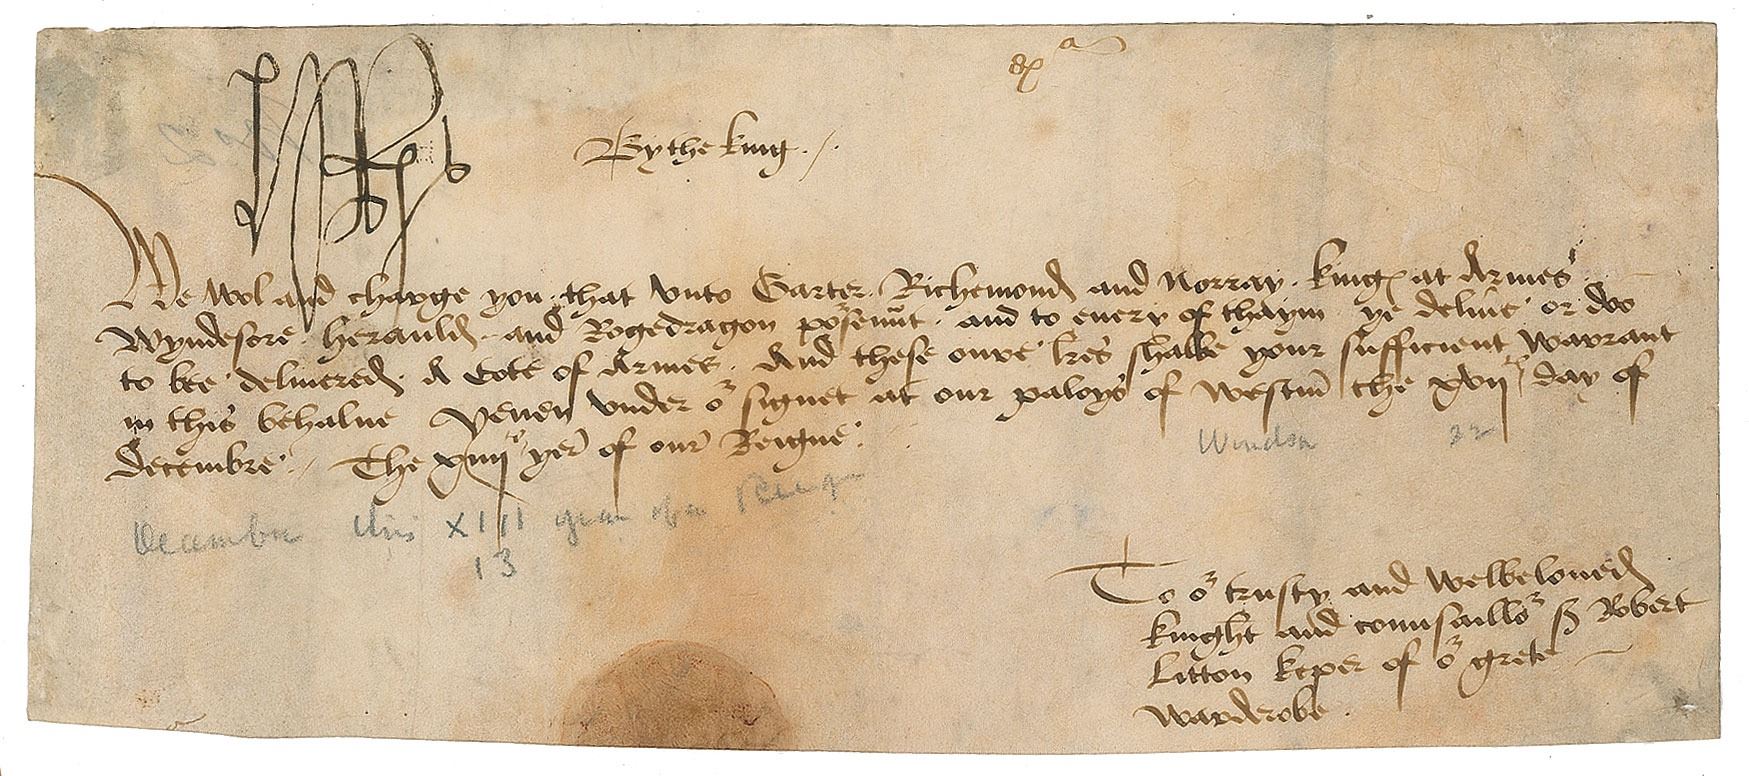 By the king
We wol and charge you that vnto Garter Richemond and Norray kinges at Armes
Wyndesore herauld and Rogedragon po'seu'nt and to euery of thaym ye deliu'e or do
to bee deliuered A Cote of Armes. And these oure l'res shalbe your sufficient warrant
in this behalue Yeuen vnder o'r signet at our paloys of Westm' the xvij day of
Decembre. The xiiij yer of our Reigne
Windsor 22
December this XIII year of our Reign
13
To o'r trusty and welbeloued
knight and counsaillo'r S' Robert
Litton keper of o'r grete
warderobe